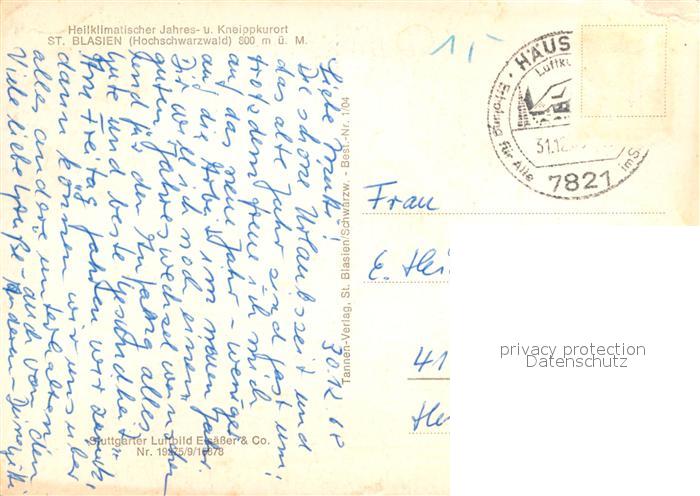 Heilklimatischer Jahres- u. Kneippkurort
ST. BLASIEN (Hochschwarzwald) 800 m ü. M.
15
HÄUS
Luftku
Erholung für Alle
31.12.
im S
7821
30.12.68
Liebe Mutti!
Die schöne Urlaubszeit und
das alte Jahr sind fast um!
trotzdem freue ich mich
auf das neue Jahr - weniger
auf die Arbeit im neuen Jahr.
Dir will ich noch einen
guten Jahreswechsel wünschen
und für den Anfang alles
Gute und beste Gesundheit.
Am Freitag fahren wir zurück,
dann können wir uns über
alles andere unterhalten.
Viele liebe Grüße - auch von den
Anderen - Deine
Tannen-Verlag, St. Blasien/Schwarzw. - Best.-Nr. 1/04
Frau
E. Hei
41
privacy protection
Datenschutz
Stuttgarter Luftbild Elsäßer & Co.
Nr. 19275/9/16878